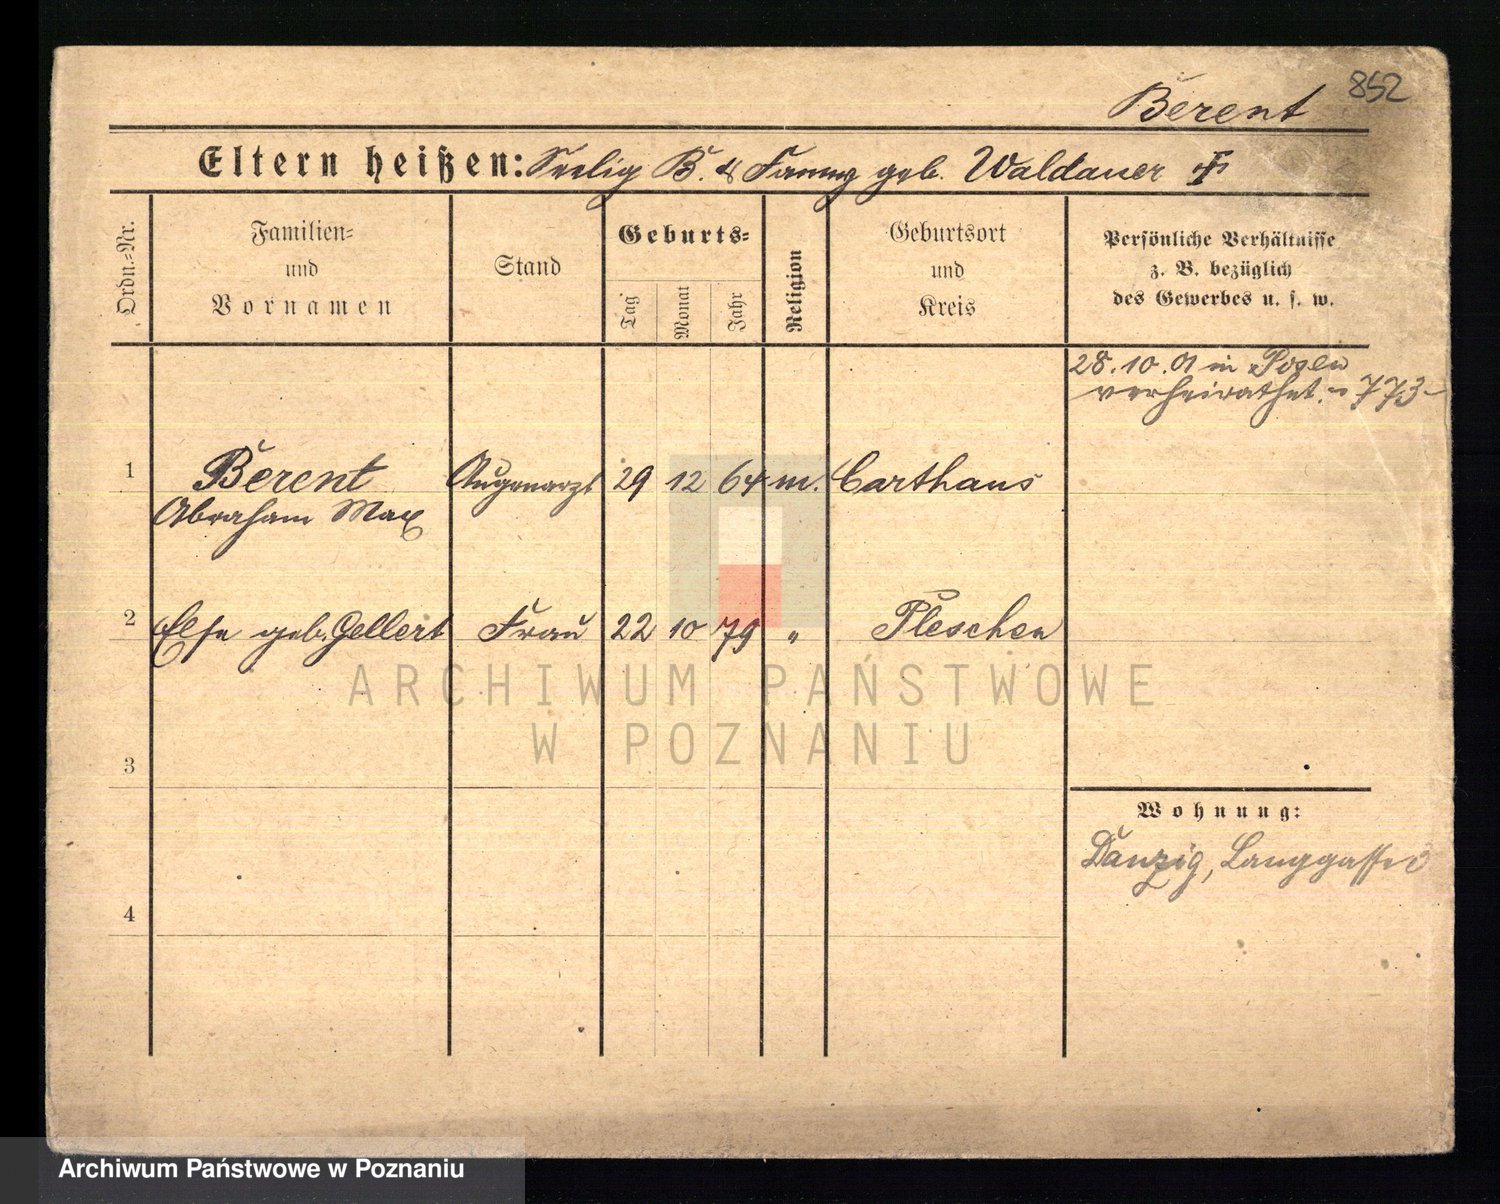 852
Berent
Eltern heißen: Seelig B. & Fanny geb. Waldauer
Ordn.-Nr.
Familien-
und
Vornamen
Stand
Geburts-
Tag
Monat
Jahr
Religion
Geburtsort
und
Kreis
Persönliche Verhältnisse
z. B. bezüglich
des Gewerbes u. s. w.
28.10.01 in Posen
verheirathet. - 773 -
1 Berent Augenarzt 29 12 64 m. Carthaus
Abraham Max
2 Else geb. Gellert Frau 22 10 79 " Pleschen
ARCHIWUM PAŃSTWOWE
W POZNANIU
3
Wohnung:
Danzig, Langgasse
4
Archiwum Państwowe w Poznaniu